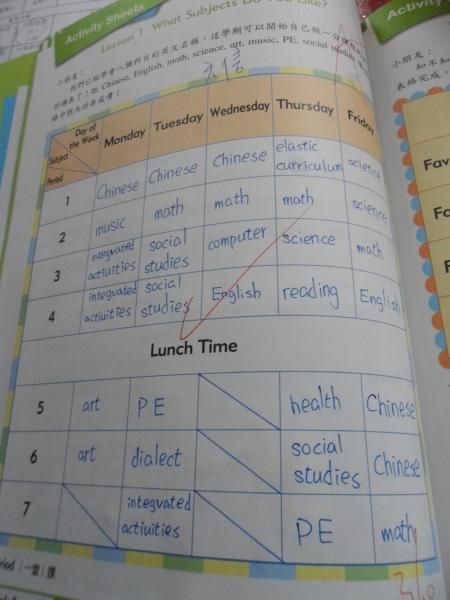 Activity Sheets
Activity
Lesson 1 What Subjects Do You Like?
小朋友：
我們已經學會八種科目的英文名稱，這學期可以開始自己做一分
Chinese, English, math, science, art, music, PE, social
Day of the Week
Subject
Period
Monday Tuesday Wednesday Thursday Friday
1 Chinese Chinese Chinese elastic curriculum science
2 music math math math science
3 integvated actiuities social studies computer science math
4 integvated actiuities social studies English reading English
Lunch Time
5 art PE health Chinese
6 art dialect social studies Chinese
7 integvated actiuities PE math
小朋友：
表格完成
Fav
Fa